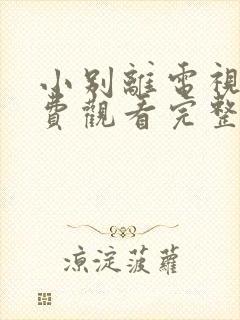 小别離電視
費觀看完整
涼淀菠蘿